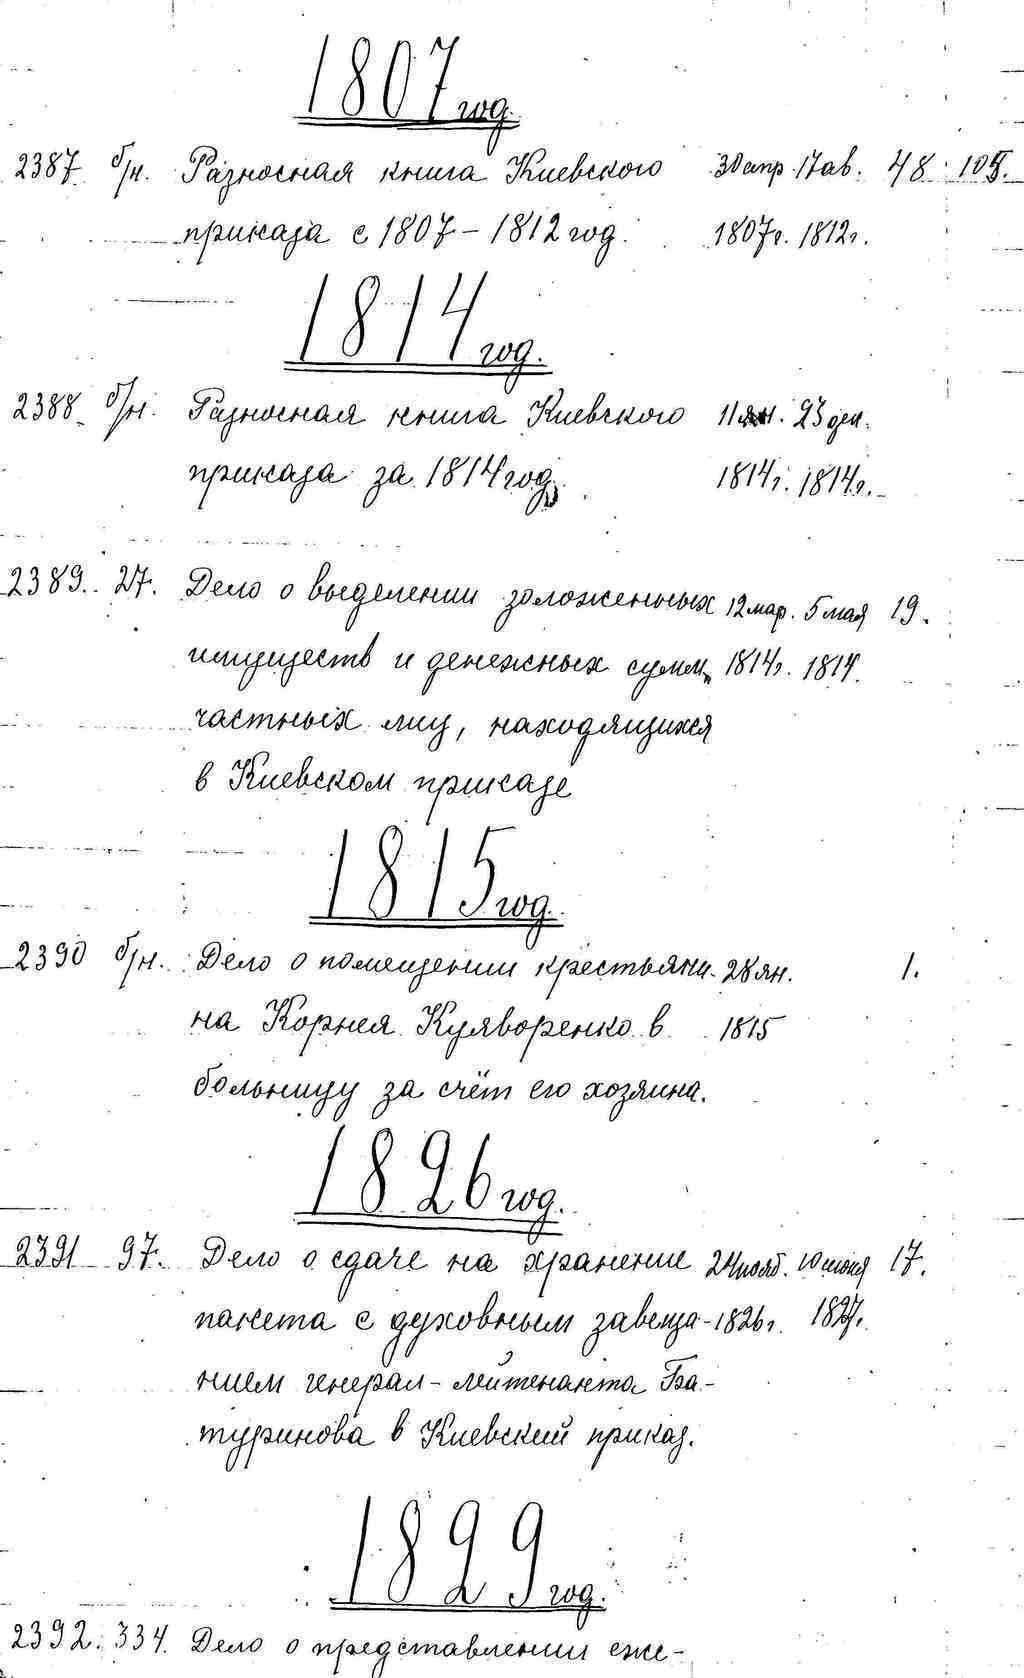 1807 год.
2387 б/н. Разносная книга Киевского 30 апр. 17 ав. 48 105.
приказа с 1807 – 1812 год. 1807г. 1812г.
1814 год.
2388 б/н. Разносная книга Киевского 11 ян. 23 дек.
приказа за 1814 год. 1814г. 1814г.
2389. 27. Дело о выделении заложенных 12 мар. 5 мая 19.
имуществ и денежных сумм, 1814г. 1814.
частных лиц, находящихся
в Киевском приказе
1815 год.
2390 б/н. Дело о помещении крестьяни- 28 ян. 1.
на Корнея Куяворенко в 1815
больницу за счёт его хозяина.
1826 год.
2391 97. Дело о сдаче на хранение 24 нояб. 10 июня 17.
пакета с духовным завеща- 1826г. 1827г.
нием генерал-лейтенанта Ба-
туринова в Киевский приказ.
1829 год.
2392. 334. Дело о представлении еже-